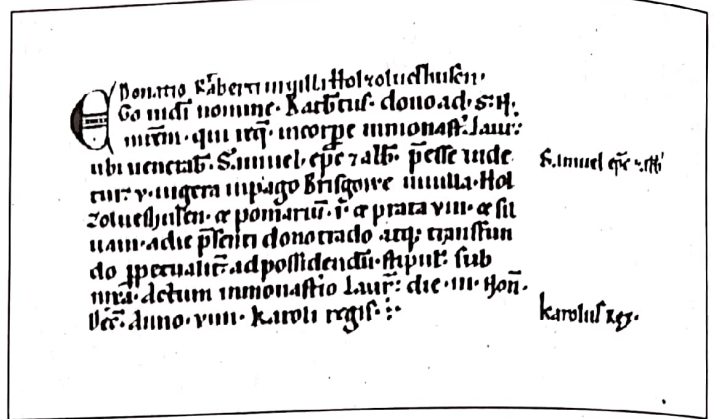 Donatio Ratberti in uilla Holzolueshusen.
Ego in di nomine. Ratbtus. dono ad. s. N.
mrem. qui req. in corpe in monast. Laur.
ubi uenerab. Samuel. epc ⁊ abb. peesse uide
tur. v. iugera in pago Brisgowe in uilla. Hol
zolueshusen. & pomariu. i. & prata viii. & sil
uam. a die psenti dono trado atq. transfun
do ppetualit. ad possidendu. stipul. sub
nixa. Actum in monastio Laur. die. iii. Non.
Dec. Anno. viiii. Karoli regis.
Samuel epc ⁊ abb
Karolus Rex.